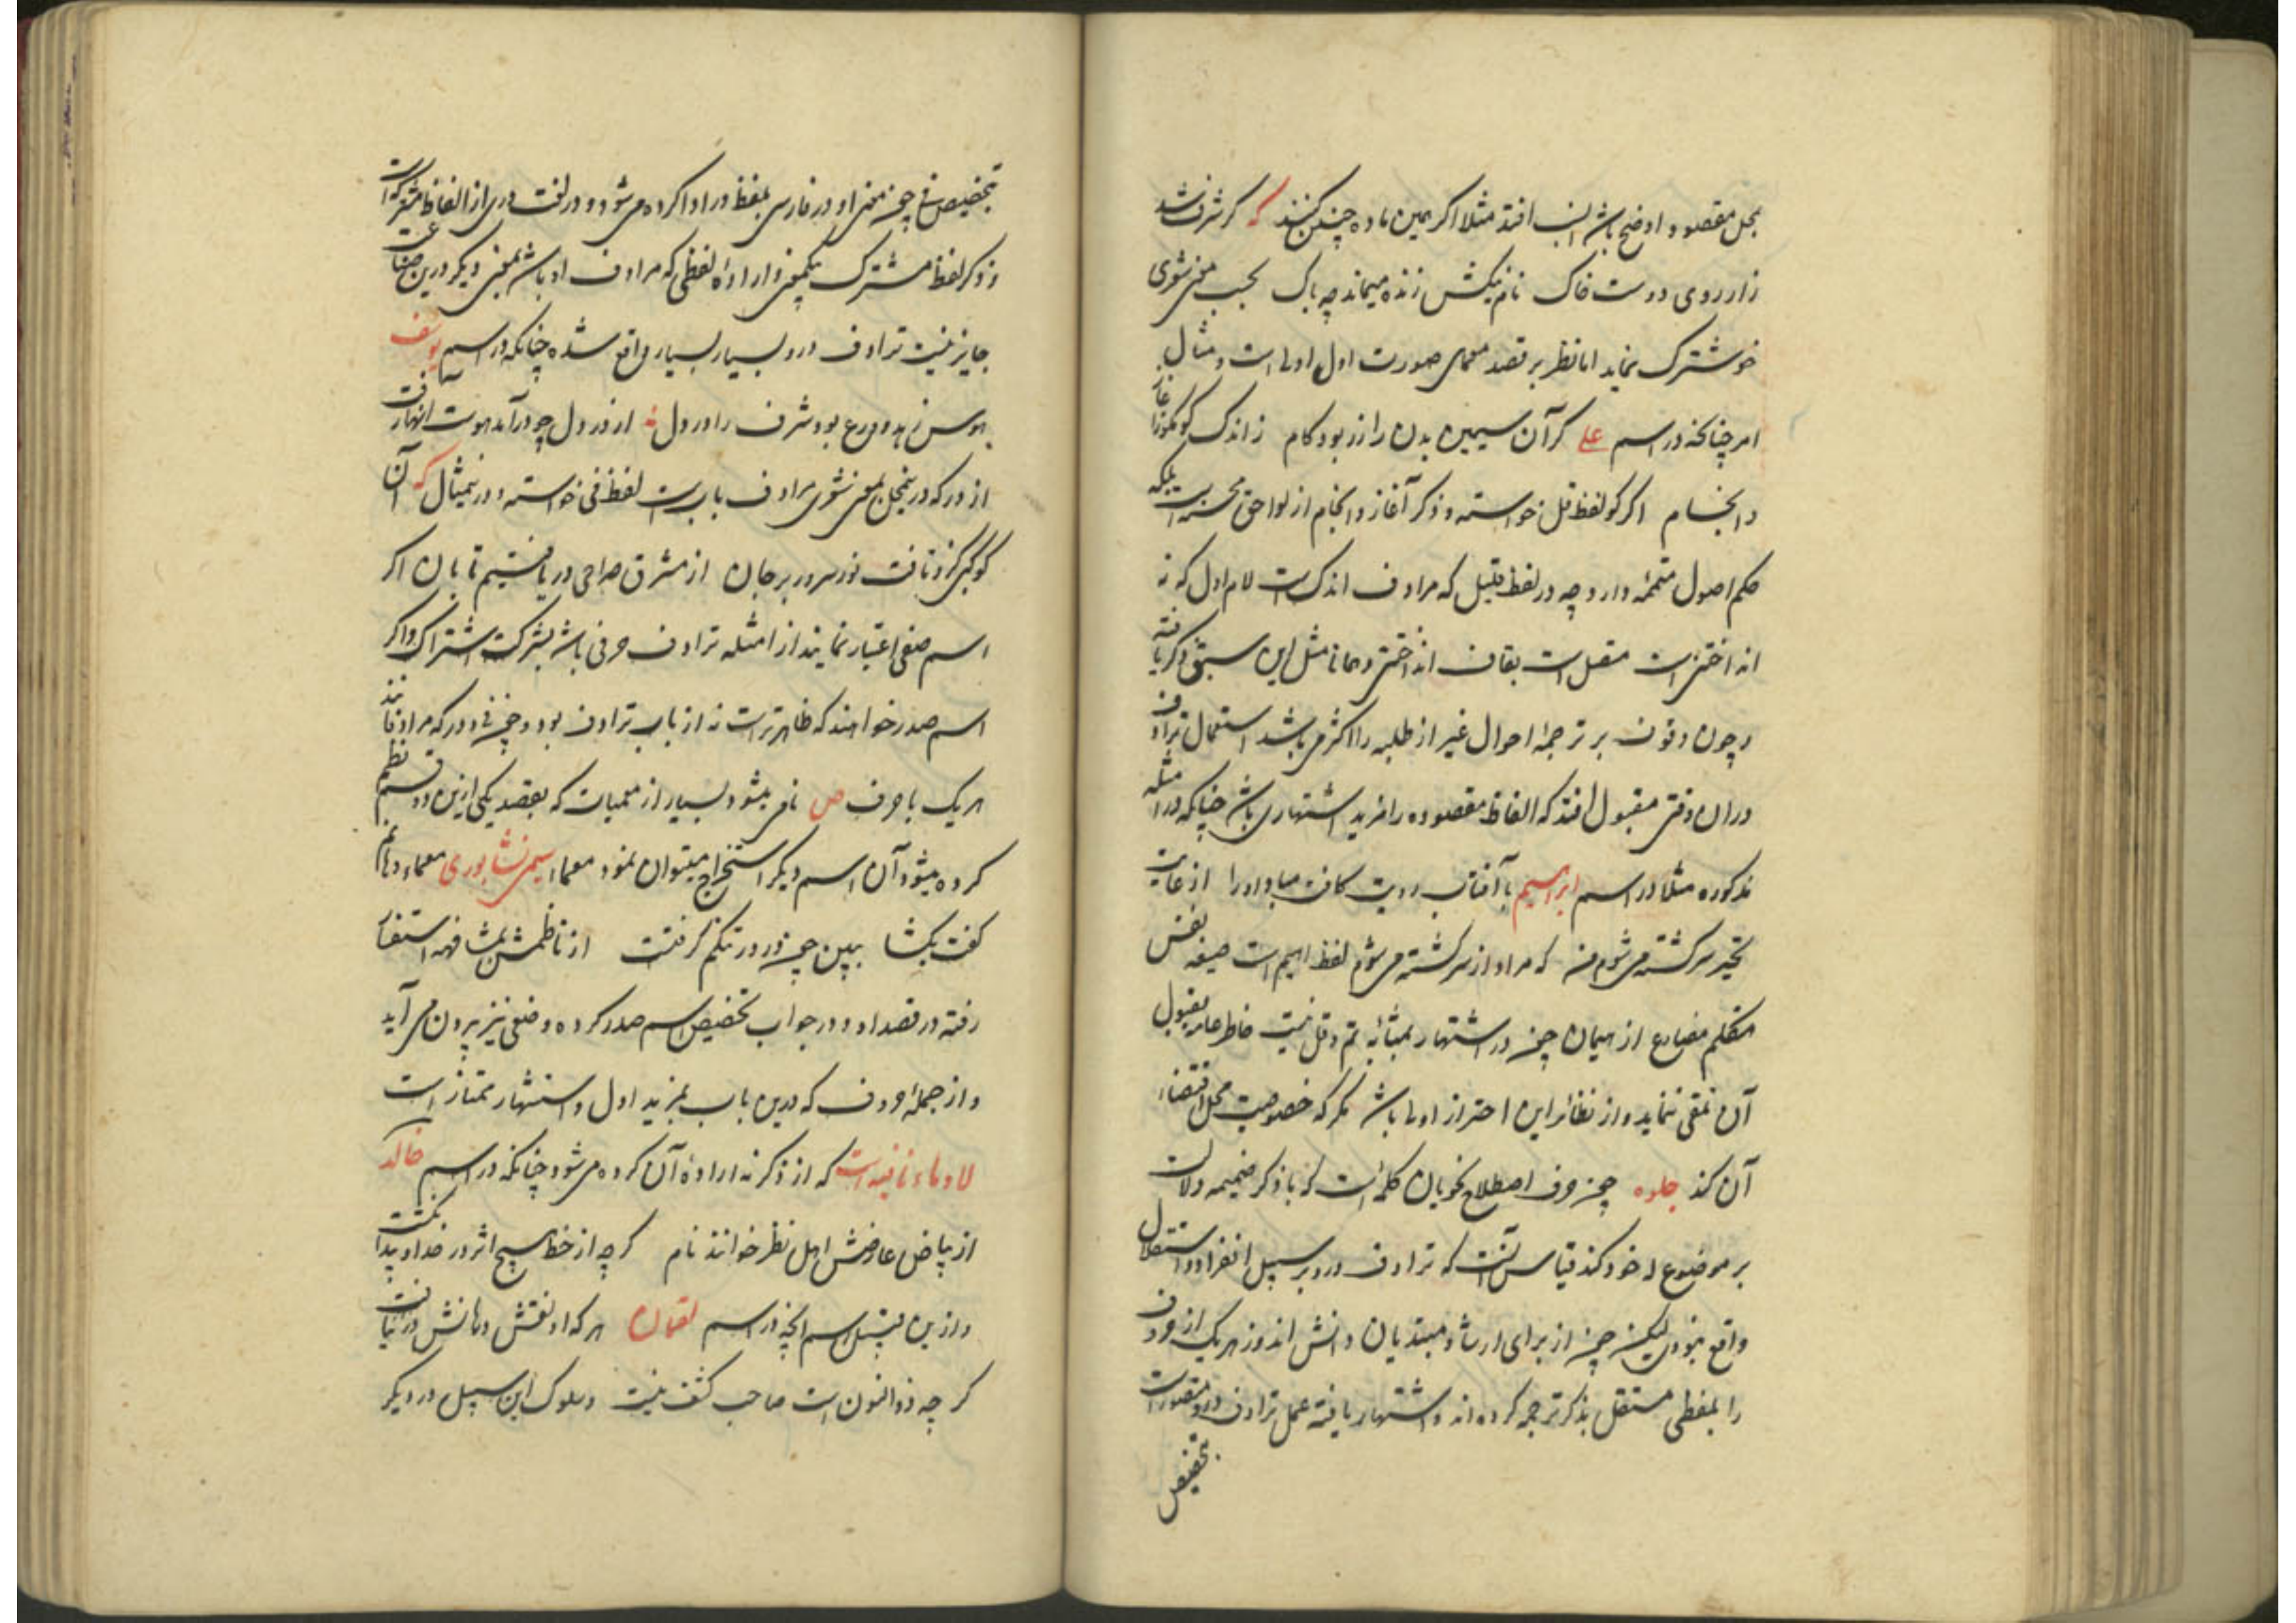 بمحل مقصود اوضح باشد انسب افتد مثلا اگر همین ماده چنین کنند که گر شرف شد
زار روی دوست خاک نام نیکش زنده میماند چه باک بحسب معنی شوری
خوشترک نماید اما نظر بر قصد معمای صورت اول اولی است و مثال
امر چنانکه در اسم علی گر آن سیمین بدن را زر بود کام ز اندک گو مگو ز آغاز
و انجام اگر گو لفظ قل خواسته و ذکر آغاز و انجام از لواحق محسنه است بلکه
حکم اصول متممه دارد چه در لفظ قلیل که مرادف اندکست لام اول که نه
انداختنی است متصل است بقاف انداختنی و همانا مثل این سبق ذکر یافته
و چون وقوف بر ترجمه احوال غیر از طلبه را کمتر می باشد استعمال ترادف
در ان وقتی مقبول افتد که الفاظ مقصوده را مزید اشتهاری باشد چنانکه در امثله
مذکوره مثلا در اسم ابراهیم با آفتاب رویت کافت مباد او را از غایت
تحیر سرگشته می شوم من که مراد از سرگشته می شوم لفظ اهیم است صیغه نفس
متکلم مضارع از هیمان چون در اشتهار بمثابه قم و قل نیست خاطر عامه بقبول
آن تلقی ننماید و از نظائر این احتراز اولی باشد مگر که خصوصیت محل اقتضاء
آن کند جلوه چون حرف اصطلاح نحویان کلمه ایست که با ذکر ضمیمه دلالت
بر موضوع له خود کند قیاس آنست که ترادف درو بر سبیل انفراد و استقلال
واقع نبودی لیکن چون از برای ارشاد مبتدیان دانش اندوز هر یک از حروف
را بلفظی مستقل بذکر ترجمه کرده اند و اشتهار یافته عمل ترادف درو متصور است
بتخصیص
بتخصیص فی چون معنی او در فارسی بلفظ در ادا کرده می شود و در لغت دری از الفاظ مشترکه است
و ذکر لفظ مشترک بیک معنی و اراده لفظی که مرادف او باشد بمعنی دیگر درین صناعت
جایز نیست ترادف درو بسیار بسیار واقع شده چنانکه در اسم یوسف
هوس زهد و ورع بود شرف را در دل از در دل چو درآمد هوست انها رفت
از در که در محل بمعنی شوری مرادف باب است لفظ فی خواسته و در تمثیل که آن
کوکبی کزو تافت نور سرور بر جان از مشرق صراحی دریافتیم تابان اگر
اسم صفی اعتبار نمایند از امثله ترادف حرفی باشد بشرکت اشتراک و اگر
اسم صدر خواهند که ظاهرتر است نه از باب ترادف بود و چون فی و در که مرادفانند
هر یک با حرف ص نامی میشود بسیار از معمیات که بقصد یکی ازین دو قسم نظم
کرده میشود آن اسم دیگر استخراج میتوان نمود معما سیمی نشابوری معماء دهانم
گفت بگشا ببین چون زر در تنگم گرفتست از ناظمش بمشافهه استفسار
رفته در قصد او و در جواب تخصیص اسم صدر کرده و صفی نیز بیرون می آید
و از جمله حروف که درین باب بمزید اول و اشتهار ممتاز است
لا و ماء نافیه است که از ذکر نه اراده آن کرده می شود چنانکه در اسم خالد
از بیاض عارضش اهل نظر خوانند نام گرچه از خط هیچ اثر در خد او پیدا نگشت
و ازین قبیل اسم آنچه در اسم لقمان هر که او نقش دهانش در نیافت
گر چه ذوالنون است صاحب کشف نیست و سلوک این سبیل در دیگر